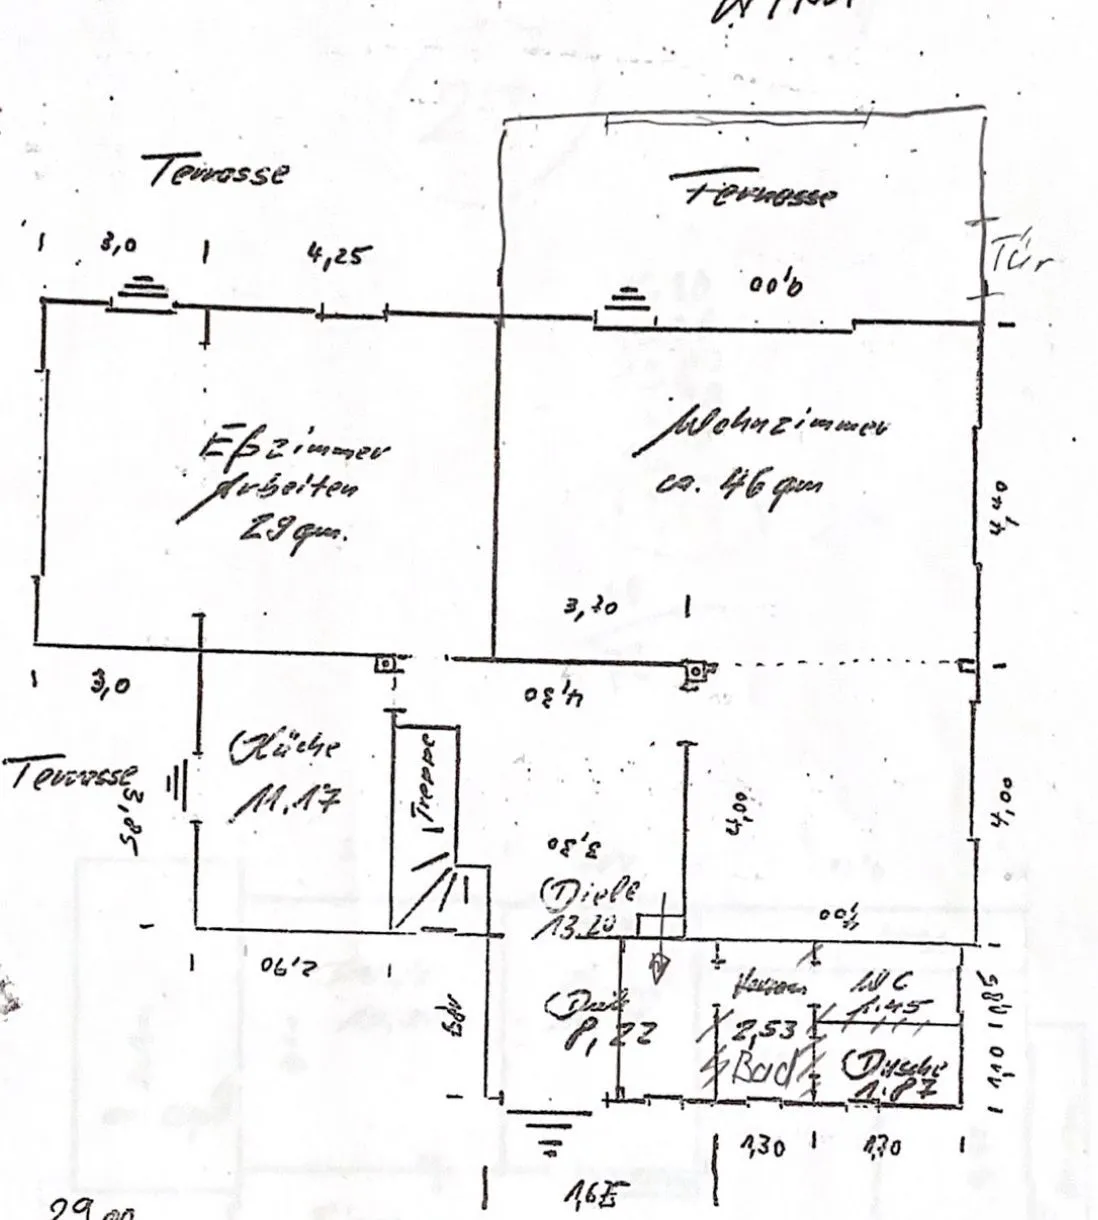 Terrasse
Terrasse
Tür
3,0
4,25
9,00
Eßzimmer
Arbeiten
29 qm.
Wohnzimmer
ca. 46 qm
4,40
3,70
3,0
4,30
Küche
11,17
Treppe
Terrasse
3,85
4,00
4,00
3,30
Diele
13.20
4,00
2,90
8,22
WC
1.45
1,85
2,53
Bad
Dusche
1.87
1,10
1,30
1,70